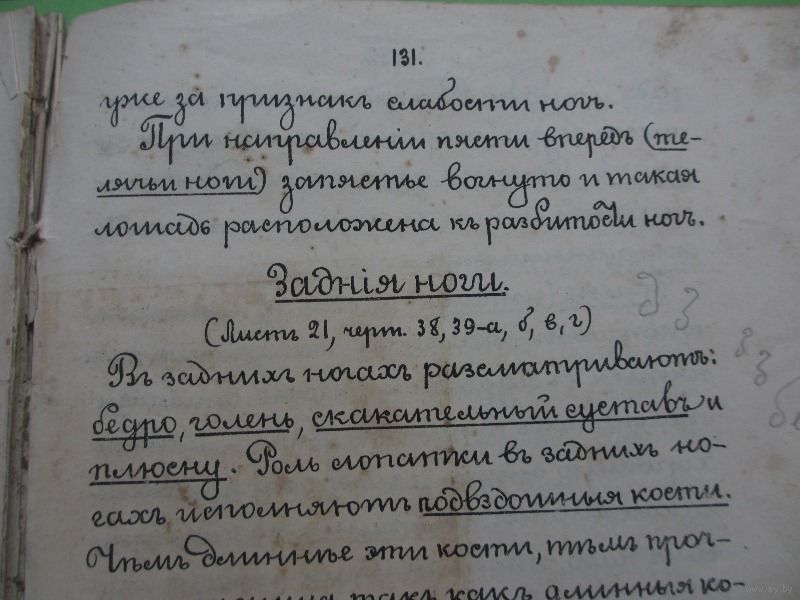 131.
уже за признакъ слабости ногъ.
При направленіи пясти впередъ (те-
лячьи ноги) запястье вогнуто и такая
лошадь расположена къ разбитости ногъ.
Заднія ноги.
(Листъ 21, черт. 38, 39-а, б, в, г)
Въ заднихъ ногахъ разсматриваютъ:
бедро, голень, скакательный суставъ и
плюсну. Роль лопатки въ заднихъ но-
гахъ исполняютъ подвздошныя кости.
Чѣмъ длиннѣе эти кости, тѣмъ проч-
такъ какъ длинныя ко-
www.ay.by